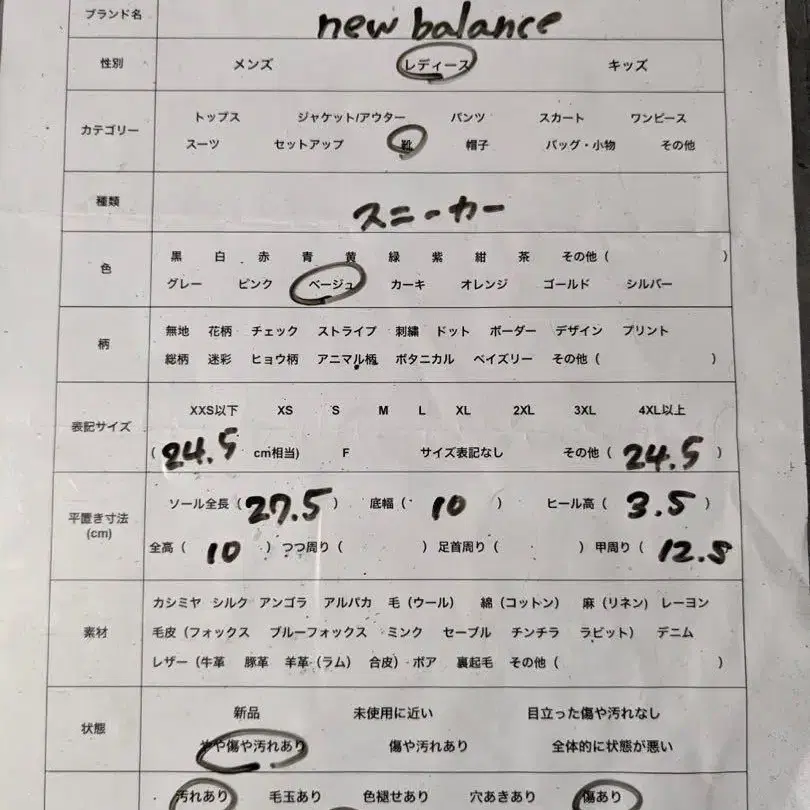 ブランド名 new balance
性別 メンズ レディース キッズ
トップス ジャケット/アウター パンツ スカート ワンピース
カテゴリー
スーツ セットアップ 靴 帽子 バッグ・小物 その他
種類 スニーカー
黒 白 赤 青 黄 緑 紫 紺 茶 その他 ( )
色
グレー ピンク ベージュ カーキ オレンジ ゴールド シルバー
無地 花柄 チェック ストライプ 刺繍 ドット ボーダー デザイン プリント
柄
総柄 迷彩 ヒョウ柄 アニマル柄 ボタニカル ペイズリー その他 ( )
XXS以下 XS S M L XL 2XL 3XL 4XL以上
表記サイズ
( 24.5 cm相当) F サイズ表記なし その他 ( 24.5 )
ソール全長 ( 27.5 ) 底幅 ( 10 ) ヒール高 ( 3.5 )
平置き寸法
(cm)
全高 ( 10 ) つつ周り ( ) 足首周り ( ) 甲周り ( 12.5
カシミヤ シルク アンゴラ アルパカ 毛 (ウール) 綿 (コットン) 麻 (リネン) レーヨン
素材 毛皮 (フォックス ブルーフォックス ミンク セーブル チンチラ ラビット) デニム
レザー (牛革 豚革 羊革 (ラム) 合皮) ボア 裏起毛 その他 ( )
新品 未使用に近い 目立った傷や汚れなし
状態
やや傷や汚れあり 傷や汚れあり 全体的に状態が悪い
汚れあり 毛玉あり 色褪せあり 穴あきあり 傷あり